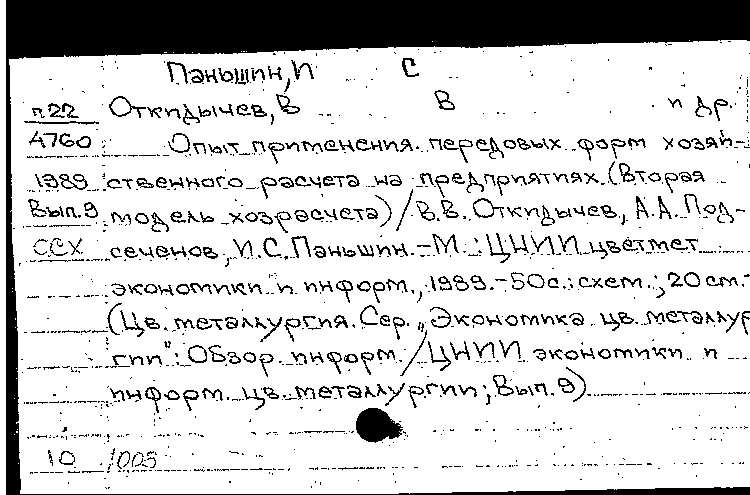 Паньшин, И С
п22 Откидычев, В В и др.
4760 Опыт применения передовых форм хозяй-
1989 ственного расчета на предприятиях (Вторая
Вып.9 модель хозрасчета) / В.В. Откидычев, А.А. Под-
ССХ сеченов, И.С. Паньшин. - М.: ЦНИИ цветмет
экономики и информ., 1989. - 50с.: схем.; 20 см. -
(Цв. металлургия. Сер. „Экономика цв. металлур
гии": Обзор. информ. / ЦНИИ экономики и
информ. цв. металлургии; Вып. 9)
10 /005